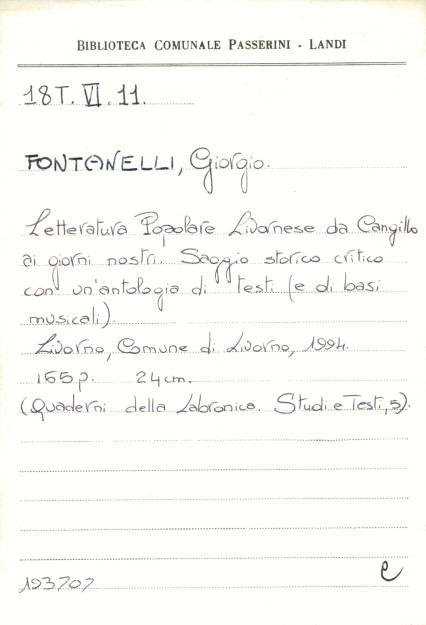 BIBLIOTECA COMUNALE PASSERINI - LANDI
18T. VI. 11.
FONTANELLI, Giorgio.
Letteratura Popolare Livornese da Cangillo
ai giorni nostri. Saggio storico critico
con un'antologia di testi (e di basi
musicali).
Livorno, Comune di Livorno, 1994.
165p. 24cm.
(Quaderni della Labronica. Studi e Testi, 5).
193707
e